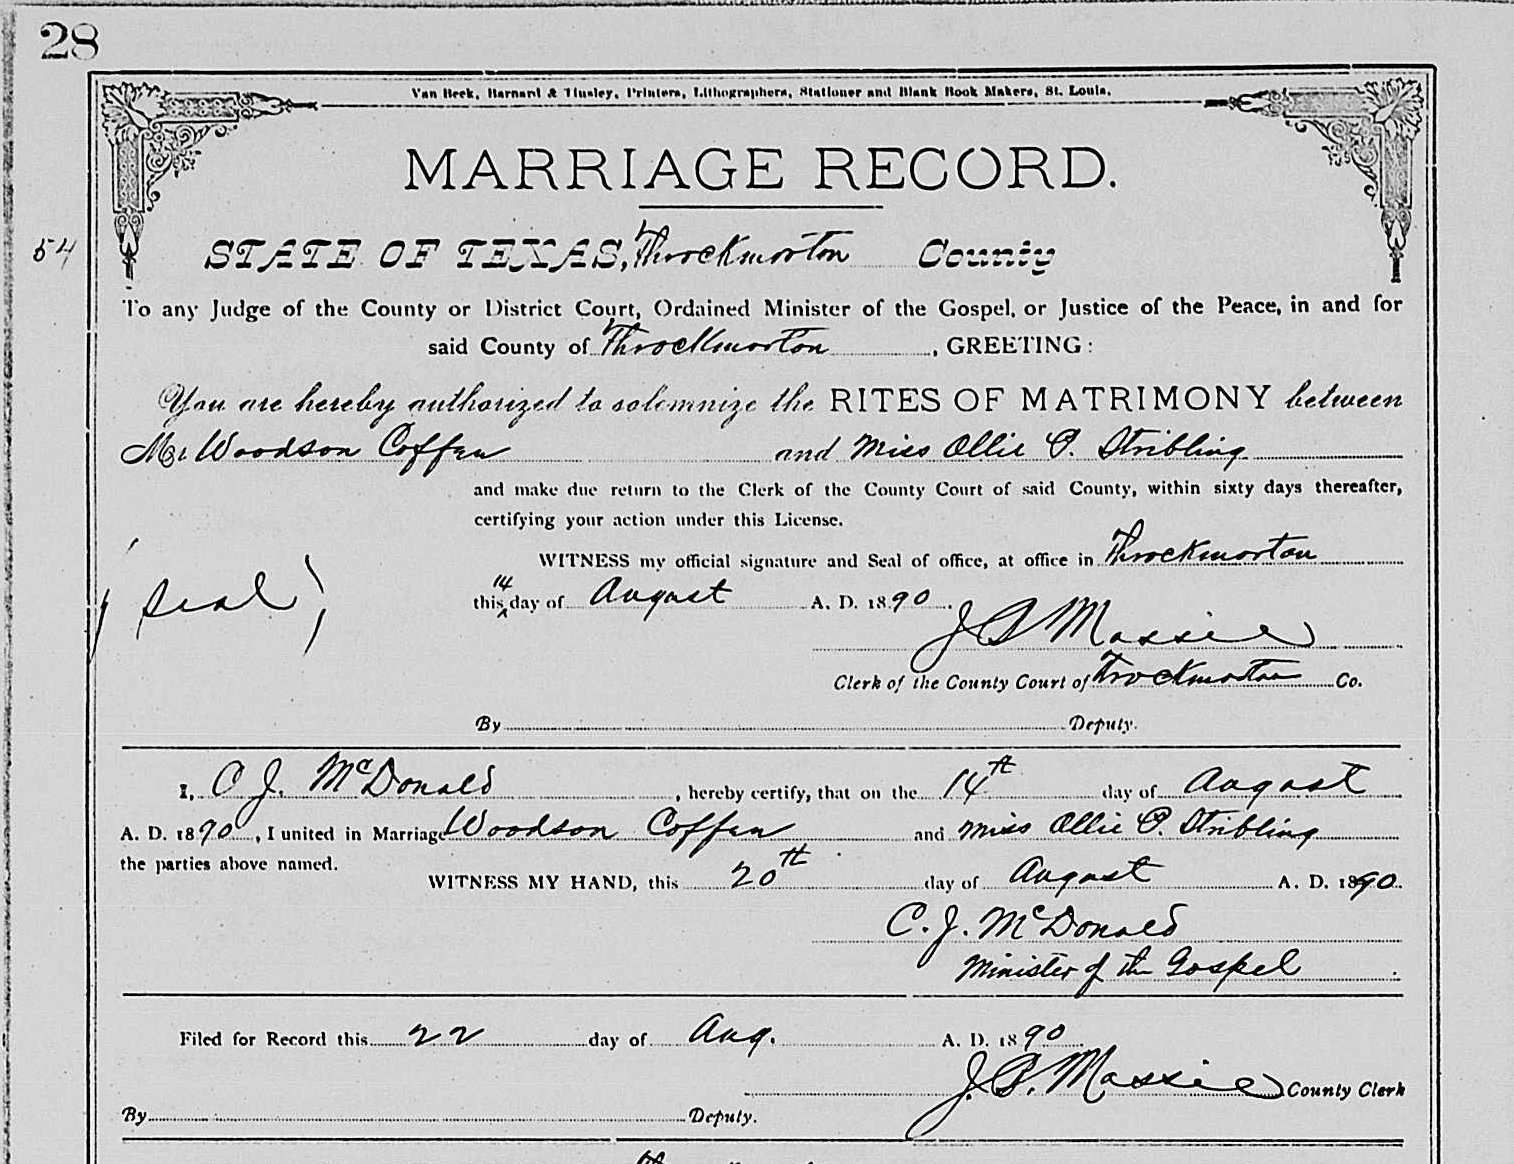 28
Van Beek, Barnard & Tinsley, Printers, Lithographers, Stationer and Blank Book Makers, St. Louis.
MARRIAGE RECORD.
54
STATE OF TEXAS, Throckmorton County
To any Judge of the County or District Court, Ordained Minister of the Gospel, or Justice of the Peace, in and for
said County of Throckmorton, GREETING:
You are hereby authorized to solemnize the RITES OF MATRIMONY between
Mr Woodson Coffee and Miss Ollie P. Stribling
and make due return to the Clerk of the County Court of said County, within sixty days thereafter,
certifying your action under this License.
WITNESS my official signature and Seal of office, at office in Throckmorton
(seal) this 14 day of August A. D. 1890.
J B Massie
Clerk of the County Court of Trockmorton Co.
By Deputy.
I, C J. McDonald, hereby certify, that on the 14th day of August
A. D. 1890, I united in Marriage Woodson Coffee and Miss Ollie P. Stribling
the parties above named.
WITNESS MY HAND, this 20th day of August A. D. 1890.
C. J. McDonald
Minister of the Gospel
Filed for Record this 22 day of Aug. A. D. 1890.
J. B. Massie County Clerk
By Deputy.